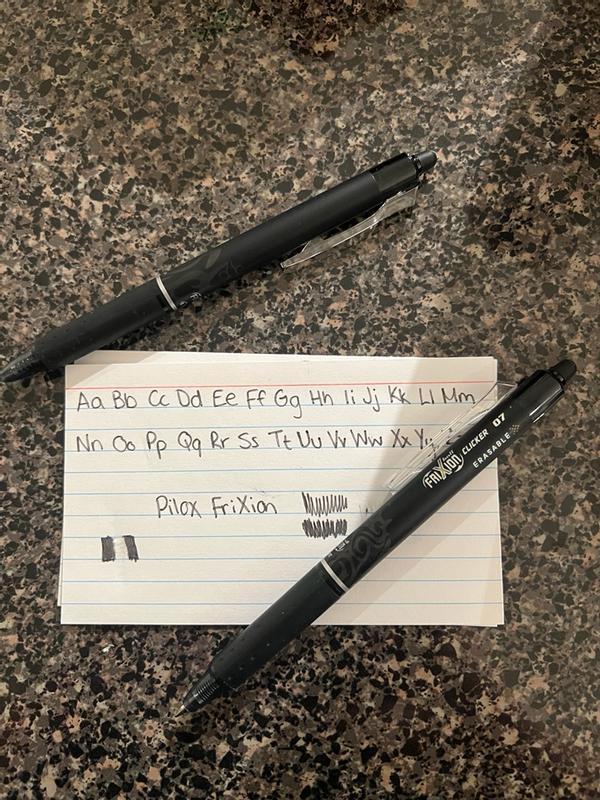 Aa Bb Cc Dd Ee Ff Gg Hh Ii Jj Kk Ll Mm
Nn Oo Pp Qq Rr Ss Tt Uu Vv Ww Xx Yy
Pilox FriXion
FRIXION CLICKER 07
ERASABLE